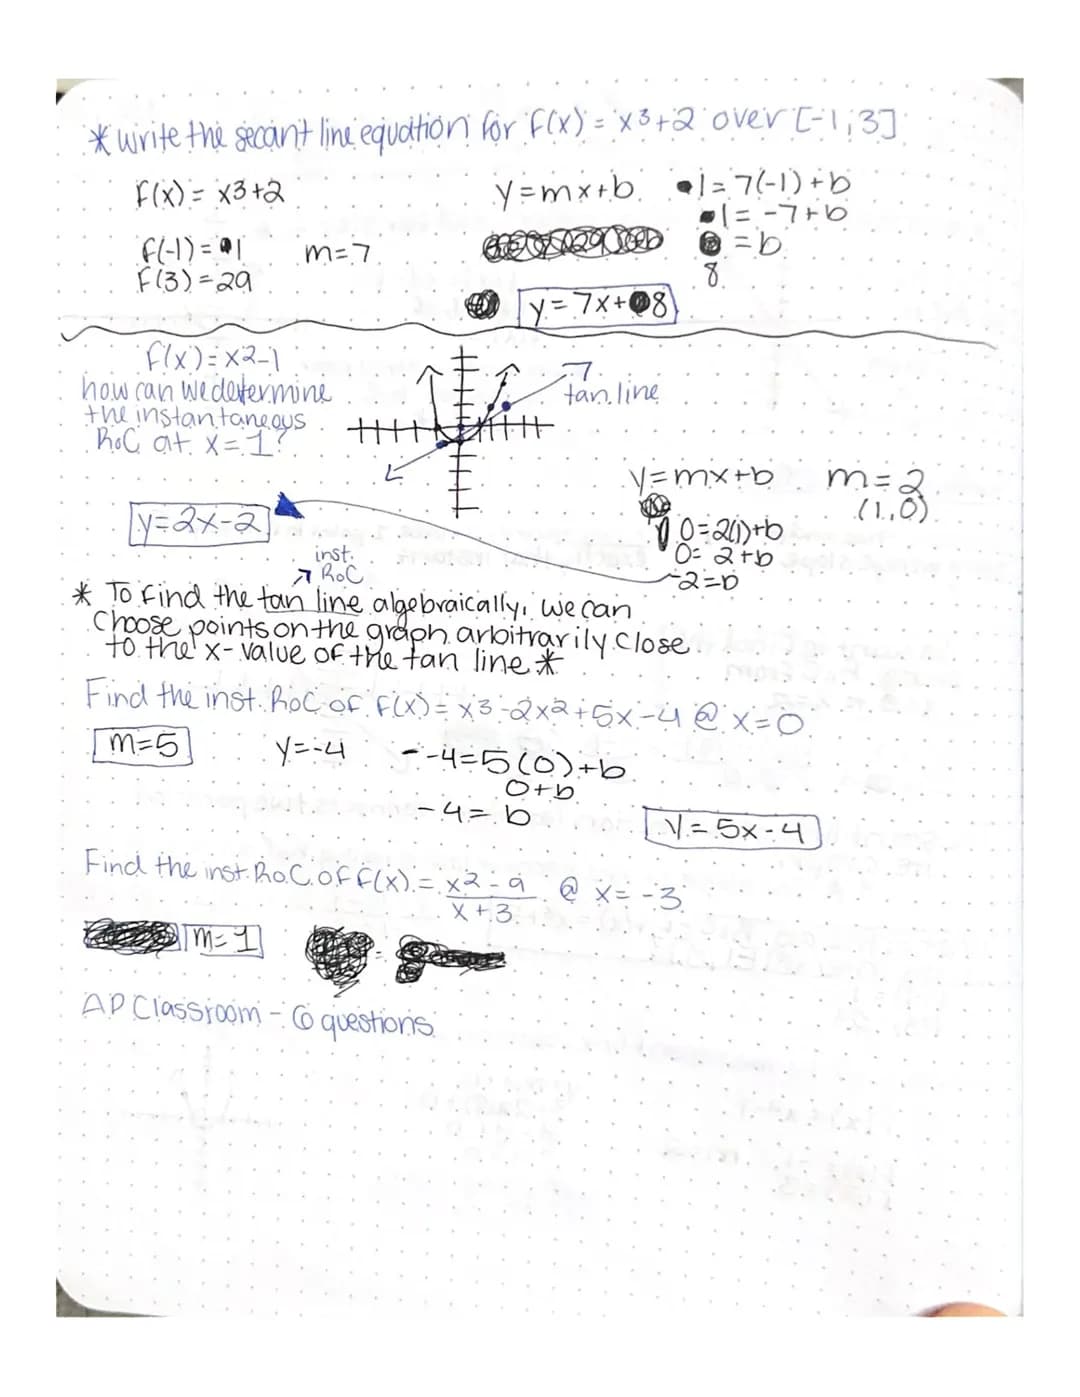 * Write the secant line equation for f(x) = x3+2 over [-1,3]
f(x) = x3+2
y=mx+b
1=7(-1)+b
1=-7+b
f(-1)=1
m=7
=b
f(3)=29
8
y=7x+8
f(x)=x2-1
how can we determine
the instantaneous
RoC at x=1?
tan. line
y=mx+b
m=2
(1,0)
y=2x-2
0=2(1)+b
0=2+b
-2=b
inst.
RoC
* To find the tan line algebraically, we can
choose points on the graph arbitrarily close
to the x-value of the tan line *
Find the inst. RoC of f(x) = x3-2x2+5x-4 @ x=0
m=5
y=-4
-4=5(0)+b
0+b
-4=b
y=5x-4
Find the inst. RoC. of f(x) = x2-9 @ x=-3
x+3
m=1
AP Classroom - 6 questions